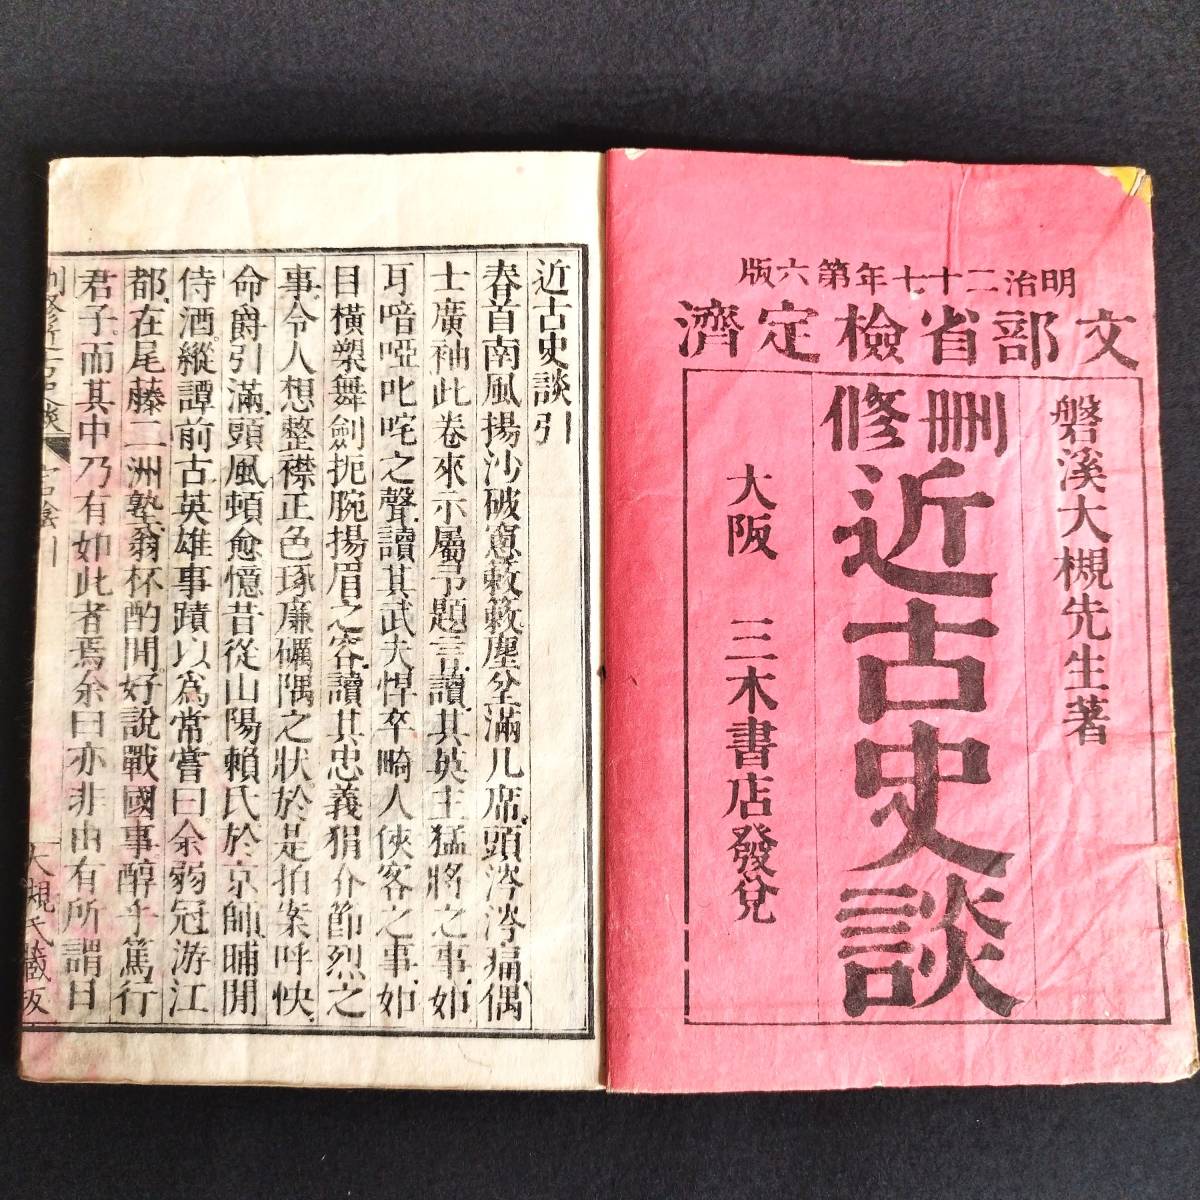 明治二十七年第六版
文部省檢定濟
磐溪大槻先生著
刪修
近古史談
大阪 三木書店發兌
近古史談引
春首南風揚沙破窻敕簌塵坌滿几席頭涔涔痛偶
士廣袖此卷來示屬予題言讀其英主猛將之事如
耳喑啞叱咤之聲讀其武夫悍卒畸人俠客之事如
目橫槊舞劍扼腕揚眉之容讀其忠義狷介節烈之
事令人想整襟正色琢廉礪隅之狀於是拍案呼快
命爵引滿頭風頓愈憶昔從山陽賴氏於京師晡閒
侍酒縱譚前古英雄事蹟以爲常嘗曰余弱冠游江
都在尾藤二洲塾翁杯酌閒好說戰國事醇乎篤行
君子而其中乃有如此者焉余曰亦非由有所謂日
刪修近古史談
大槻氏藏版